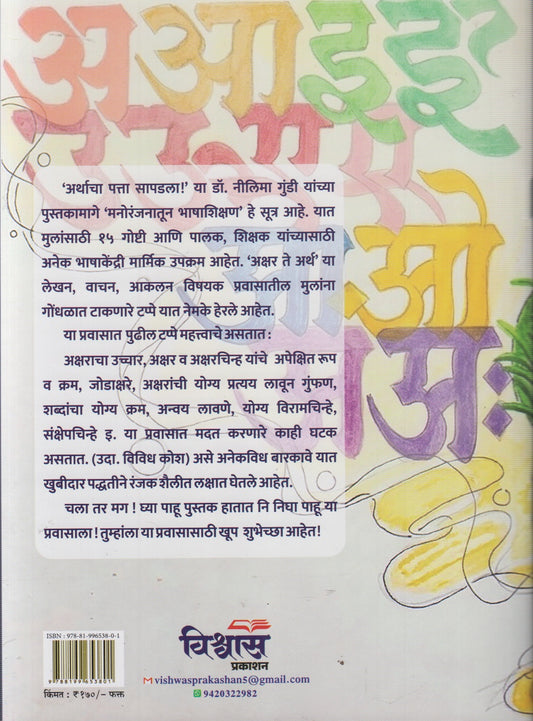 अ आ इ ई
उ ऊ ए
ओ
अः
‘अर्थाचा पत्ता सापडला!’ या डॉ. नीलिमा गुंडी यांच्या
पुस्तकामागे ‘मनोरंजनातून भाषाशिक्षण’ हे सूत्र आहे. यात
मुलांसाठी १५ गोष्टी आणि पालक, शिक्षक यांच्यासाठी
अनेक भाषाकेंद्री मार्मिक उपक्रम आहेत. ‘अक्षर ते अर्थ’ या
लेखन, वाचन, आकलन विषयक प्रवासातील मुलांना
गोंधळात टाकणारे टप्पे यात नेमके हेरले आहेत.
या प्रवासात पुढील टप्पे महत्त्वाचे असतात :
अक्षराचा उच्चार, अक्षर व अक्षरचिन्ह यांचे अपेक्षित रूप
व क्रम, जोडाक्षरे, अक्षरांची योग्य प्रत्यय लावून गुंफण,
शब्दांचा योग्य क्रम, अन्वय लावणे, योग्य विरामचिन्हे,
संक्षेपचिन्हे इ. या प्रवासात मदत करणारे काही घटक
असतात. (उदा. विविध कोश) असे अनेकविध बारकावे यात
खुबीदार पद्धतीने रंजक शैलीत लक्षात घेतले आहेत.
चला तर मग ! घ्या पाहू पुस्तक हातात नि निघा पाहू या
प्रवासाला ! तुम्हांला या प्रवासासाठी खूप शुभेच्छा आहेत !
ISBN : 978-81-996538-0-1
9 788199 653801
किंमत : ₹१७०/- फक्त
विश्वास
प्रकाशन
vishwasprakashan5@gmail.com
9420322982